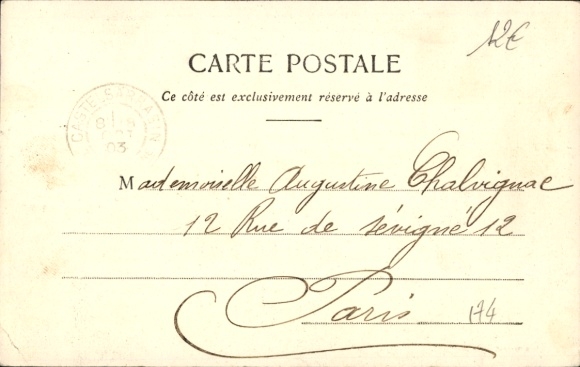 12€
CARTE POSTALE
Ce côté est exclusivement réservé à l'adresse
03
Mademoiselle Augustine Chalvignac
12 Rue de Sévigné 12
Paris
174